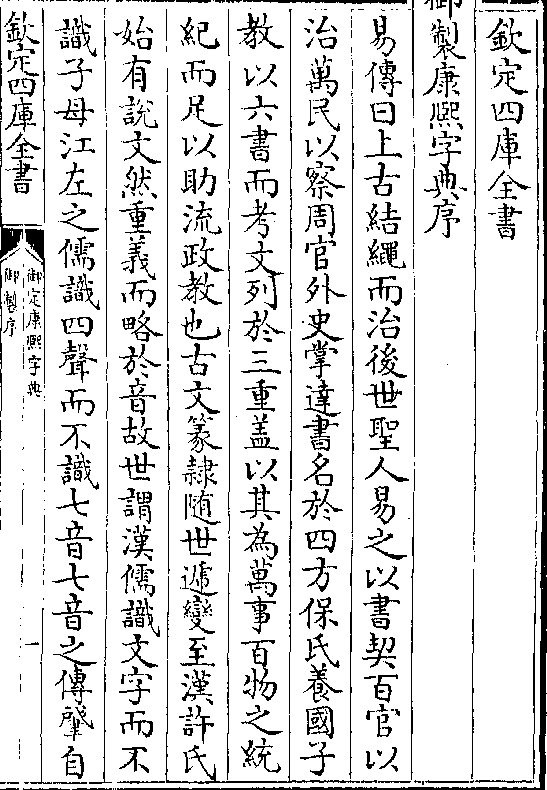 欽定四庫全書
御製康熙字典序
易傳曰上古結繩而治後世聖人易之以書契百官以
治萬民以察周官外史掌達書名於四方保氏養國子
教以六書而考文列於三重盖以其為萬事百物之統
紀而足以助流政教也古文篆隸隨世遞變至漢許氏
始有說文然重義而略於音故世謂漢儒識文字而不
識子母江左之儒識四聲而不識七音七音之傳肇自
欽定四庫全書
御定康熙字典
御製序
一